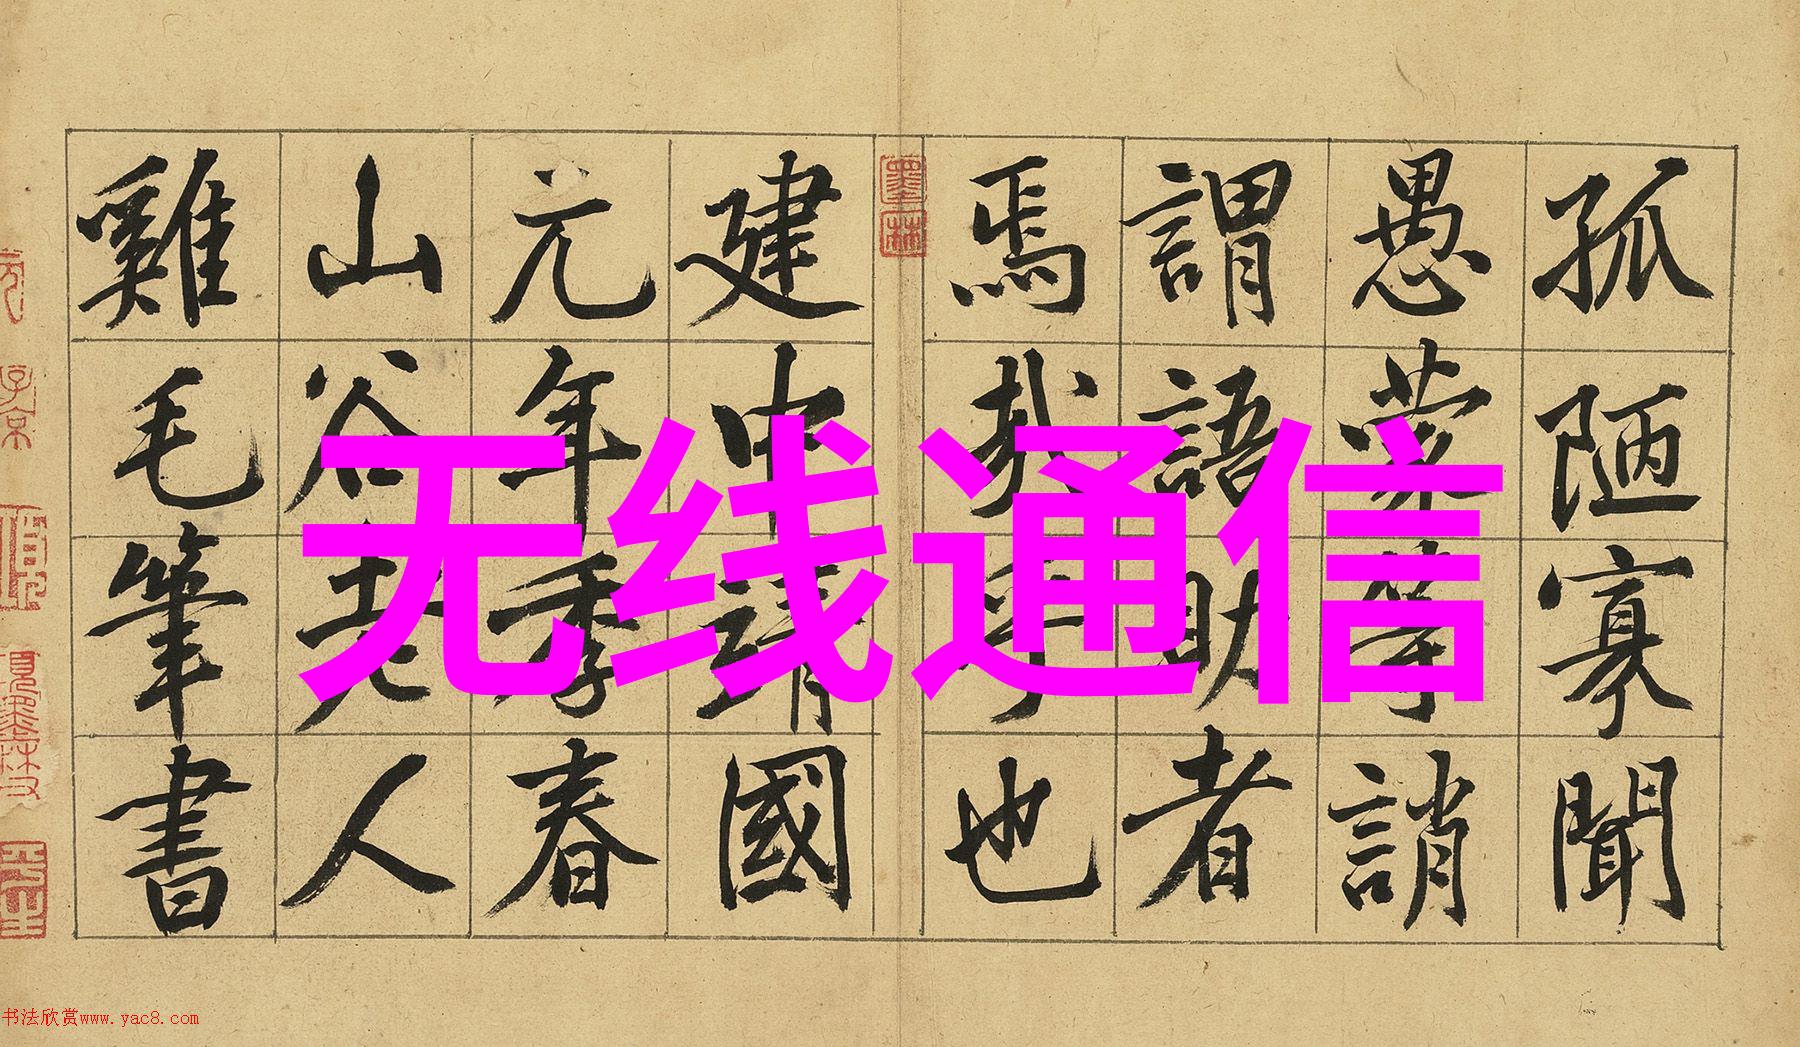 孤陋寡聞
愚蒙等誚
謂語助者
焉哉乎也
建中靖國
元年季春
山谷老人
雞毛筆書
墨林
子京
无线通信
书法欣赏www.yac8.com